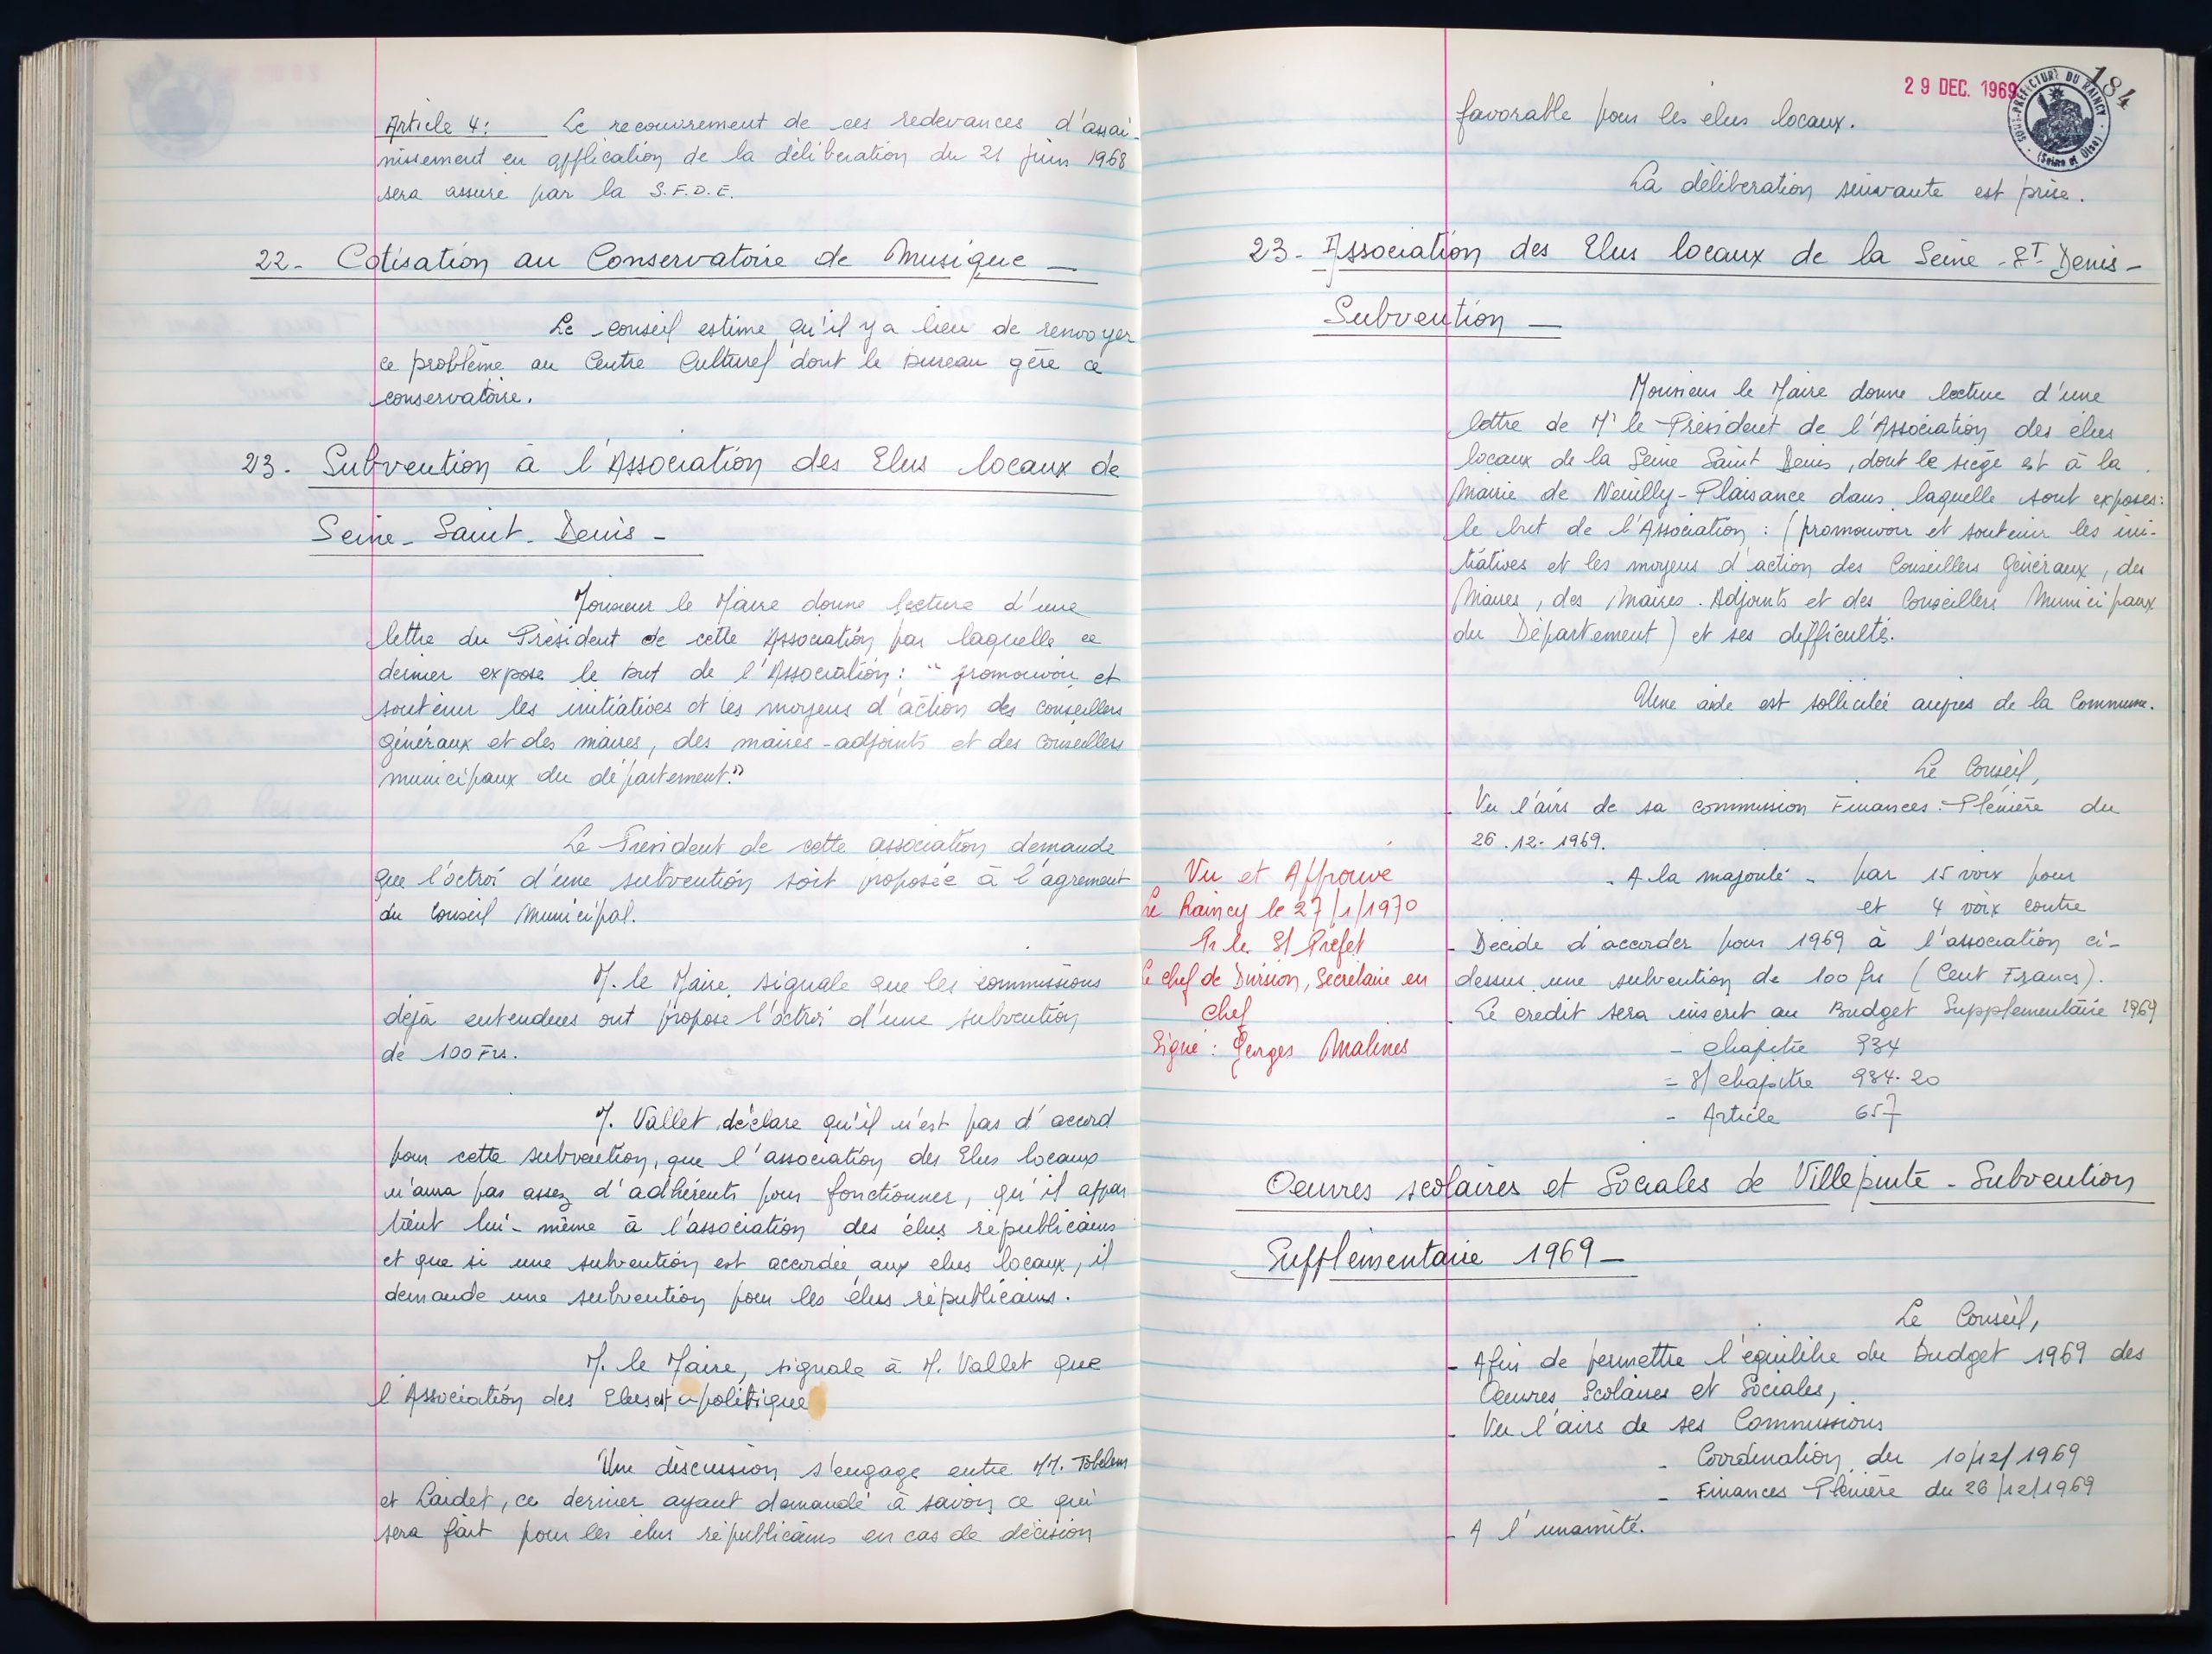 Article 4: Le recouvrement de ces redevances d'assai-
nissement en application de la délibération du 21 juin 1968
sera assuré par la S.F.D.E.
22- Cotisation au Conservatoire de Musique -
Le conseil estime qu'il y a lieu de renvoyer
ce problème au Centre Culturel dont le bureau gère ce
conservatoire.
23- Subvention à l'Association des Elus locaux de
Seine-Saint-Denis-
Monsieur le Maire donne lecture d'une
lettre du Président de cette Association par laquelle ce
dernier expose le but de l'Association : "promouvoir et
soutenir les initiatives et les moyens d'action des conseillers
généraux et des maires, des maires-adjoints et des conseillers
municipaux du département."
Le Président de cette association demande
que l'octroi d'une subvention soit proposée à l'agrément
du Conseil Municipal.
M. le Maire, signale que les commissions
déjà entendues ont proposé l'octroi d'une subvention
de 100 Frs.
M. Vallet déclare qu'il n'est pas d'accord
pour cette subvention, que l'association des Elus locaux
n'aura pas assez d'adhérents pour fonctionner, qu'il appar
tient lui-même à l'association des élus républicains
et que si une subvention est accordée aux élus locaux, il
demande une subvention pour les élus républicains.
M. le Maire, signale à M. Vallet que
l'Association des Elus est apolitique
Une discussion s'engage entre MM. Tobelem
et Lardet, ce dernier ayant demandé à savoir ce qui
sera fait pour les élus républicains en cas de décision
29 DEC. 1969
184
SOUS-PRÉFECTURE DU RAINCY
(Seine et Oise)
favorable pour les élus locaux.
La délibération suivante est prise.
23- Association des Elus locaux de la Seine-St-Denis-
Subvention -
Monsieur le Maire donne lecture d'une
lettre de Mr le Président de l'Association des élus
locaux de la Seine Saint Denis, dont le siège est à la
Mairie de Neuilly-Plaisance dans laquelle sont exposés :
le but de l'Association : (promouvoir et soutenir les ini-
tiatives et les moyens d'action des Conseillers Généraux, des
Maires, des Maires-Adjoints et des Conseillers Municipaux
du Département) et ses difficultés.
Une aide est sollicitée auprès de la Commune.
Le Conseil,
- Vu l'avis de sa commission Finances-Plénière du
26.12.1969.
- A la majorité - par 15 voix pour
et 4 voix contre
- Décide d'accorder pour 1969 à l'association ci-
dessus une subvention de 100 frs (Cent Francs).
- Le crédit sera inscrit au Budget Supplémentaire 1969
- chapitre 934
- S/chapitre 934.20
- Article 657
Vu et Approuvé
Le Raincy le 27/1/1970
Pr le S/Préfet
Le chef de Division, Secrétaire en
chef
Signé : Georges Malines
Oeuvres scolaires et Sociales de Villepinte - Subvention
Supplémentaire 1969 -
Le Conseil,
- Afin de permettre l'équilibre du budget 1969 des
Oeuvres Scolaires et Sociales,
- Vu l'avis de ses Commissions
- Coordination du 10/12/1969
- Finances Plénière du 26/12/1969
- A l'unamité.